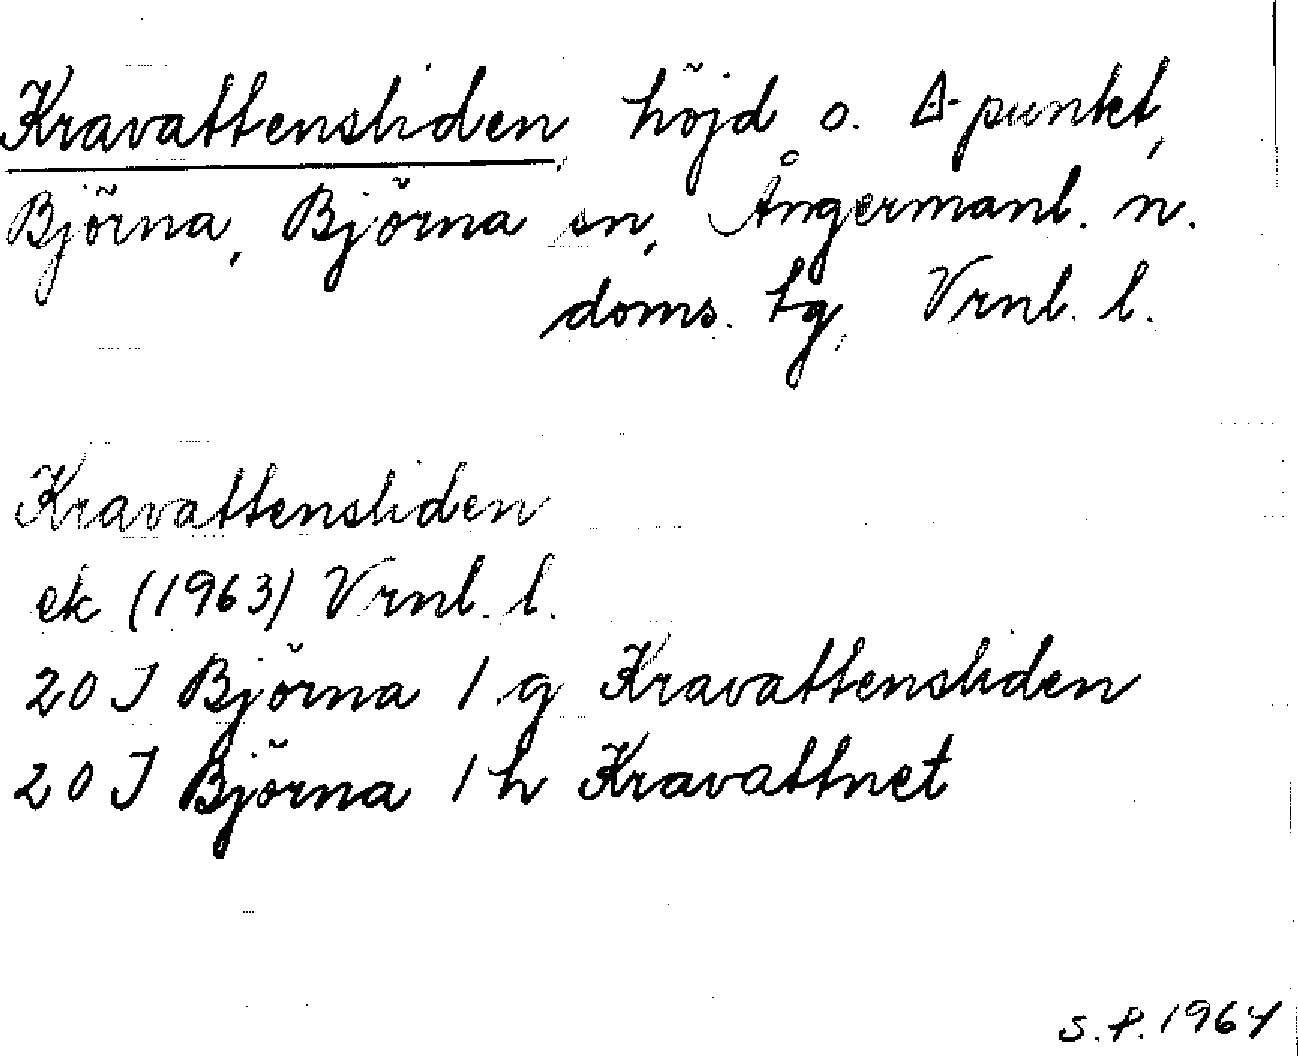 Kravattensliden, höjd o. Δ-punkt,
Björna, Björna sn, Ångermanl. n.
doms. tg, Vrnl. l.
Kravattensliden
ek (1963) Vrnl. l.
20 J Björna 1 g Kravattensliden
20 J Björna 1 h Kravattnet
S.P. 1964